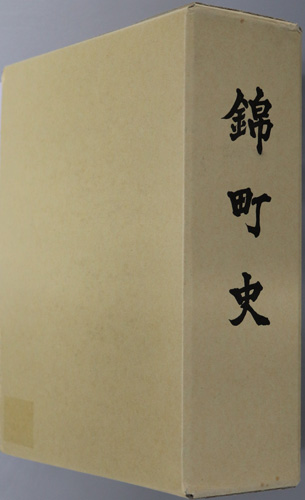 錦町史